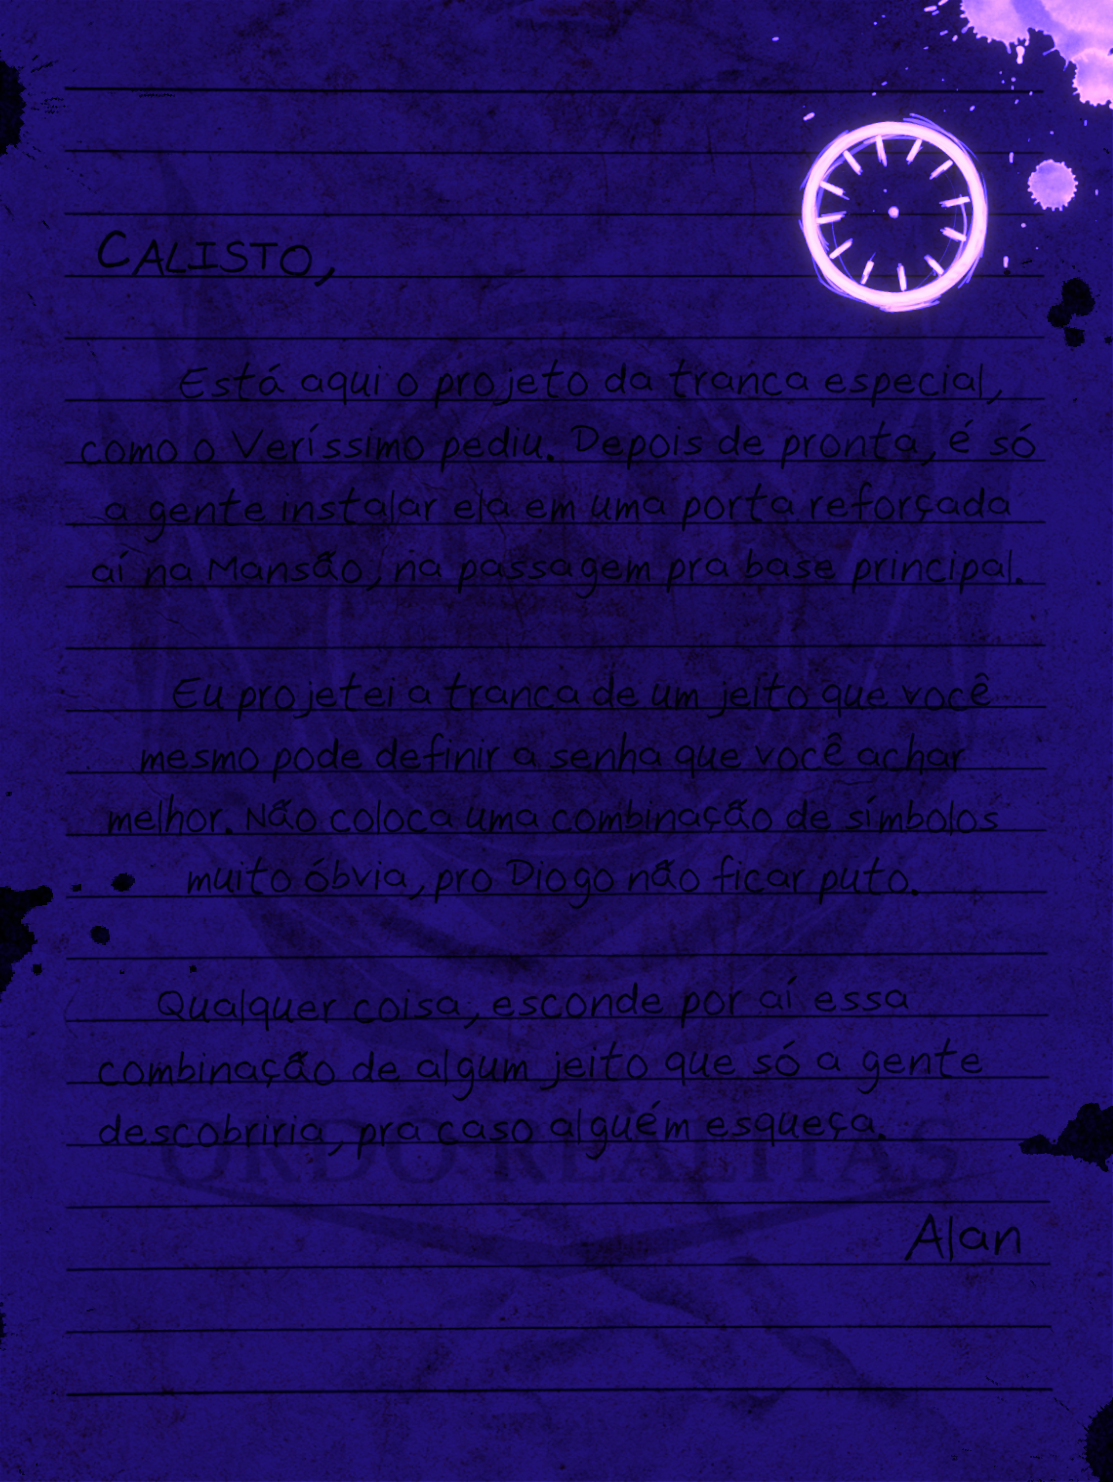 CALISTO,
Está aqui o projeto da tranca especial,
como o Veríssimo pediu. Depois de pronta, é só
a gente instalar ela em uma porta reforçada
aí na Mansão, na passagem pra base principal.
Eu projetei a tranca de um jeito que você
mesmo pode definir a senha que você achar
melhor. Não coloca uma combinação de símbolos
muito óbvia, pro Diogo não ficar puto.
Qualquer coisa, esconde por aí essa
combinação de algum jeito que só a gente
descobriria, pra caso alguém esqueça.
ORDO REALITAS
Alan